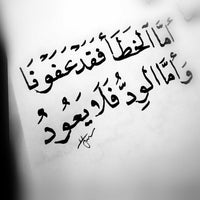 أَمَّا الخَطَأُ فَقَدْ عَفَوْنَا
وَأَمَّا الوِدُّ فَلَا يَعُودُ